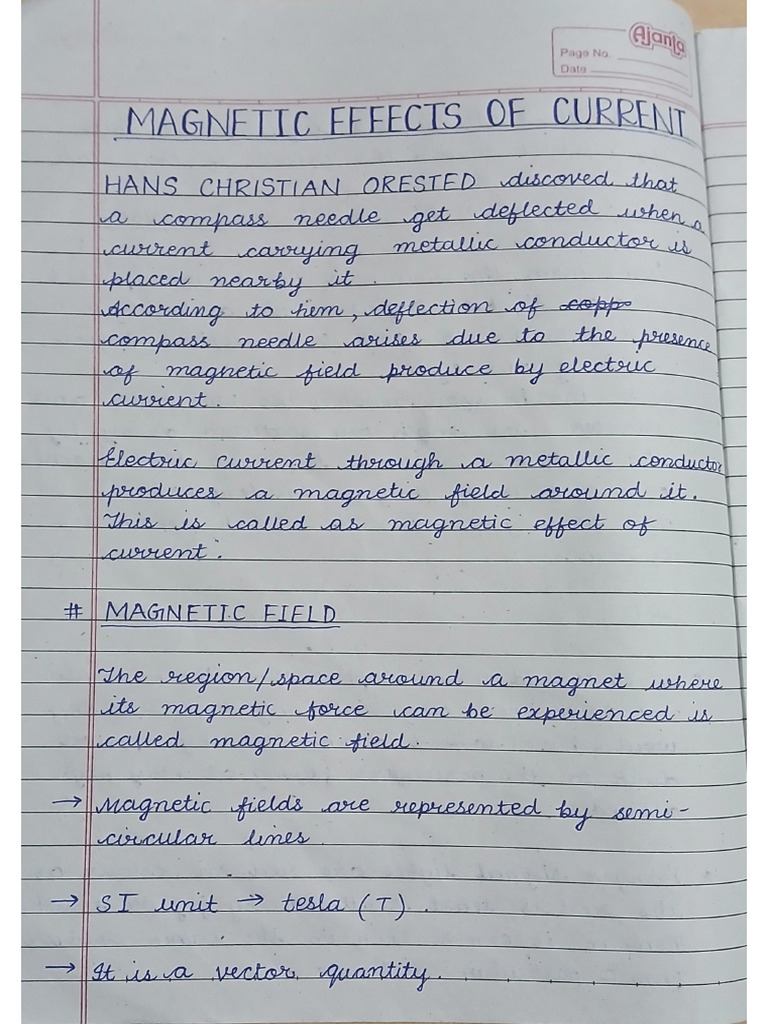 Ajanta
Page No.
Date
MAGNETIC EFFECTS OF CURRENT
HANS CHRISTIAN ORESTED discoved that
a compass needle get deflected when a
current carrying metallic conductor is
placed nearby it.
According to hem, deflection of copp
compass needle arises due to the presence
of magnetic field produce by electric
current.
Electric current through a metallic conductor
produces a magnetic field around it.
This is called as magnetic effect of
current.
# MAGNETIC FIELD
The region/space around a magnet where
its magnetic force can be experienced is
called magnetic field.
→ Magnetic fields are represented by semi-
circular lines.
→ SI unit → tesla (T).
→ It is a vector quantity.